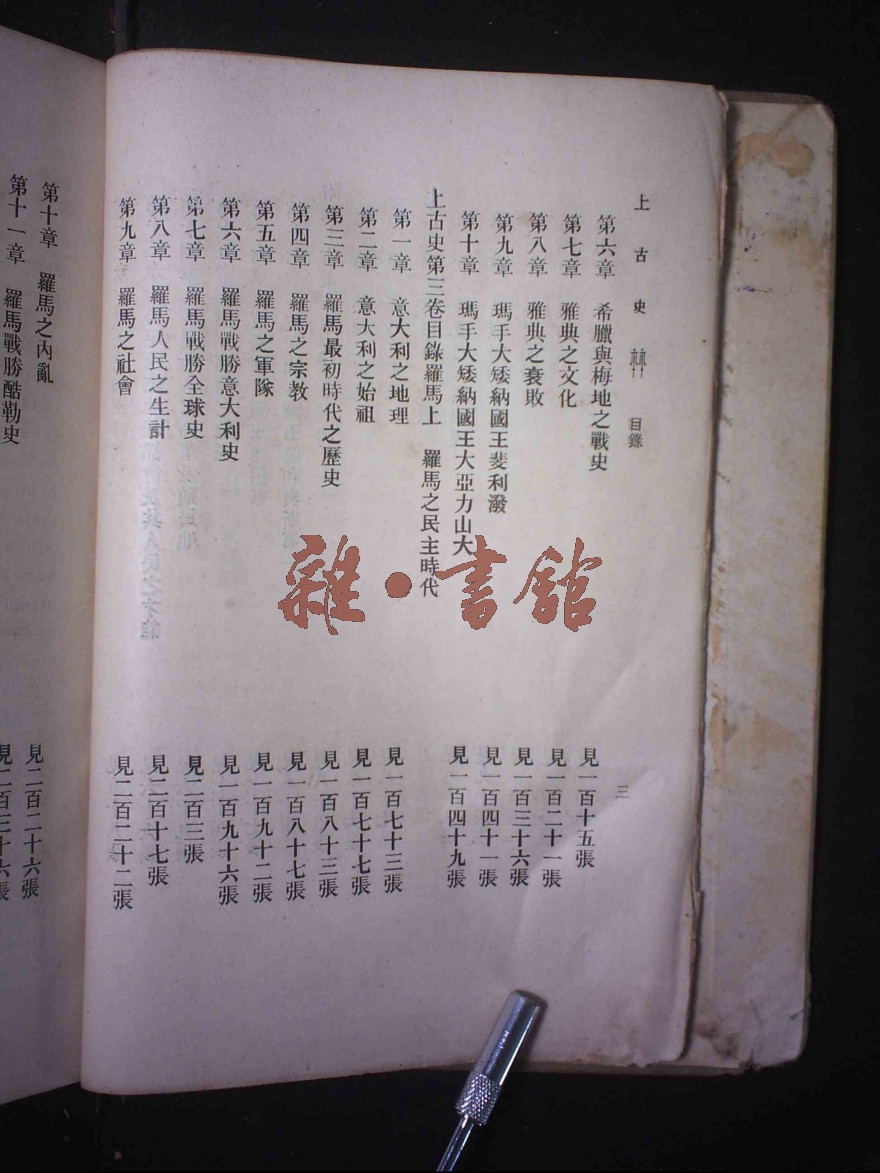 上古史 目錄 三
第六章 希臘與梅地之戰史 見一百十五張
第七章 雅典之文化 見一百二十一張
第八章 雅典之衰敗 見一百三十六張
第九章 瑪手大矮納國王斐利潑 見一百四十一張
第十章 瑪手大矮納國王大亞力山大 見一百四十九張
上古史第三卷目錄羅馬上 羅馬之民主時代
第一章 意大利之地理 見一百七十三張
第二章 意大利之始祖 見一百七十七張
第三章 羅馬最初時代之歷史 見一百八十三張
第四章 羅馬之宗教 見一百八十七張
第五章 羅馬之軍隊 見一百九十二張
第六章 羅馬戰勝意大利史 見一百九十六張
第七章 羅馬戰勝全球史 見二百三張
第八章 羅馬人民之生計 見二百十七張
第九章 羅馬之社會 見二百二十二張
第十章 羅馬之內亂 見二百二十六張
第十一章 羅馬戰勝酷勒史 見二百三十六張
雜·書館